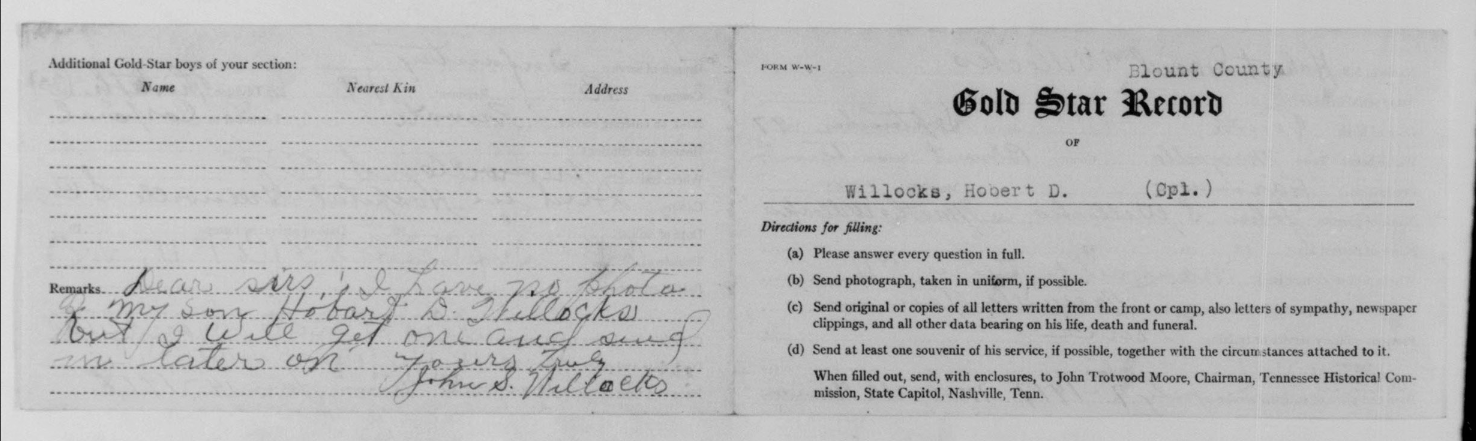 Additional Gold-Star boys of your section:
Name Nearest Kin Address
Remarks Dear sirs, I have no photo
of my son Hobart D. Willocks
but I will get one and send
in later on Yours truly
John S. Willocks
FORM W-W-1
Blount County
Gold Star Record
OF
Willocks, Hobert D. (Cpl.)
Directions for filling:
(a) Please answer every question in full.
(b) Send photograph, taken in uniform, if possible.
(c) Send original or copies of all letters written from the front or camp, also letters of sympathy, newspaper
clippings, and all other data bearing on his life, death and funeral.
(d) Send at least one souvenir of his service, if possible, together with the circumstances attached to it.
When filled out, send, with enclosures, to John Trotwood Moore, Chairman, Tennessee Historical Com-
mission, State Capitol, Nashville, Tenn.